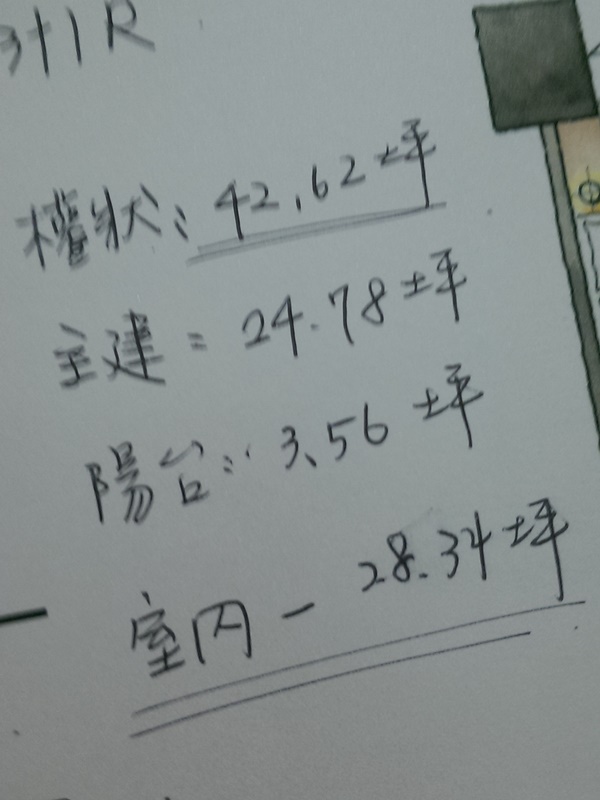 3+1R
權狀: 42.62坪
主建: 24.78坪
陽台: 3.56坪
室內-28.34坪